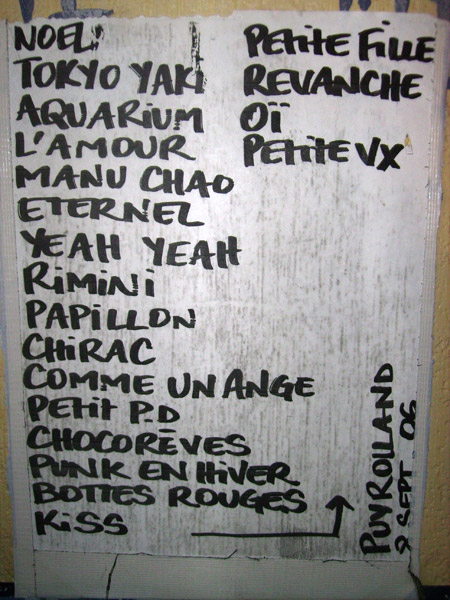 NOEL
TOKYO YAKI
AQUARIUM
L'AMOUR
MANU CHAO
ETERNEL
YEAH YEAH
RiMiNi
PAPiLLON
CHiRAC
COMME UN ANGE
PETit P.D
CHOCORÊVES
PUNK EN HiVER
BOTTES ROUGES
KiSS
PETiTE FiLLE
REVANCHE
OÏ
PETiTE VX
PUYROLLAND
9 SEPT. 06